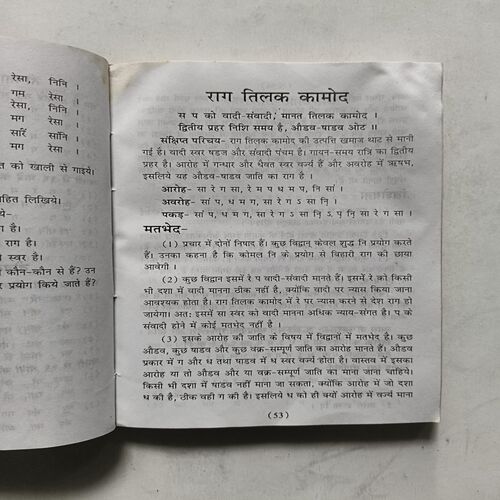 रेसा, निनि ।
गम रेसा ।
रेसा, निनि ।
मग रेसा ।
सारें सांनि ।
मग रेसा ।
त को खाली से गाइये।
हित लिखिये।
ये-
राग है।
स्वर है।
में कौन-कौन से हैं? उन
र प्रयोग किये जाते हैं?
राग तिलक कामोद
स प को वादी-संवादी, मानत तिलक कामोद ।
द्वितीय प्रहर निशि समय है, औडव-षाडव ओट ॥
संक्षिप्त परिचय- राग तिलक कामोद की उत्पत्ति खमाज थाट से मानी
गई है। वादी स्वर षडज और संवादी पंचम है। गायन-समय रात्रि का द्वितीय
प्रहर है। आरोह में गन्धार और धैवत स्वर वर्ज्य हैं और अवरोह में ऋषभ,
इसलिये यह औडव-षाडव जाति का राग है ।
आरोह- सा रे ग सा, रे म प ध म प, नि सां ।
अवरोह- सां प, ध म ग, सा रे ग ऽ सा नि़ ।
पकड़- सां प, ध म ग, सा रे ग ऽ सा नि़ ऽ, प़ नि़ सा रे ग सा ।
मतभेद-
(1) प्रचार में दोनों निषाद हैं। कुछ विद्वान केवल शुद्ध नि प्रयोग करते
हैं। उनका कहना है कि कोमल नि के प्रयोग से बिहारी राग की छाया
आवेगी ।
(2) कुछ विद्वान इसमें रे प वादी-संवादी मानते हैं। इसमें रे को किसी
भी दशा में वादी मानना ठीक नहीं है, क्योंकि वादी पर न्यास किया जाना
आवश्यक होता है। राग तिलक कामोद में रे पर न्यास करने से देश राग हो
जायेगा। अत: इसमें सा स्वर को वादी मानना अधिक न्याय-संगत है। प के
संवादी होने में कोई मतभेद नहीं है ।
(3) इसके आरोह की जाति के विषय में विद्वानों में मतभेद है। कुछ
औडव, कुछ षाडव और कुछ वक्र-सम्पूर्ण जाति का आरोह मानते हैं। औडव
प्रकार में ग और ध तथा षाडव में ध स्वर वर्ज्य होता है। वास्तव में इसका
आरोह या तो औडव और या वक्र-सम्पूर्ण जाति का माना जाना चाहिये।
किसी भी दशा में षाडव नहीं माना जा सकता, क्योंकि आरोह में जो दशा
ध की है, ठीक वही ग की है। इसलिये ध को ही क्यों आरोह में वर्ज्य माना
(53)